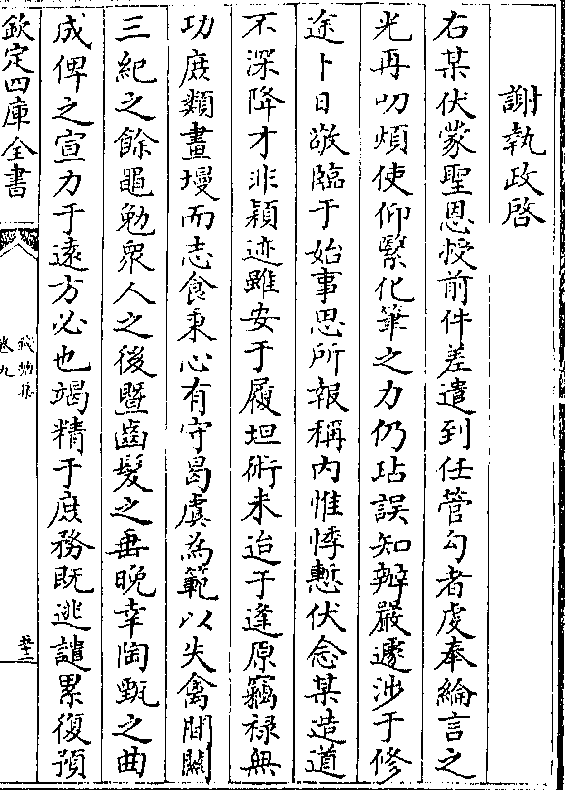 謝執政啓
右某伏蒙聖恩授前件差遣到任管勾者虔奉綸言之
光再叨煩使仰繄化筆之力仍玷誤知辦嚴遽涉于修
途卜日敬臨于始事思所報稱内惟悸慙伏念某造道
不深降才非穎迹雖安于履坦術未迨于逢原竊祿無
功庶類畫墁而志食秉心有守曷虞為範以失禽間關
三紀之餘黽勉衆人之後暨齒髮之垂晚幸陶甄之曲
成俾之宣力于遠方必也竭精于庶務既逃譴累復預
欽定四庫全書
卷九